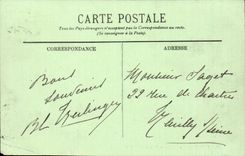 CARTE POSTALE
Tous les Pays étrangers n'acceptent pas la Correspondance au recto.
(Se renseigner à la Poste)
CORRESPONDANCE
ADRESSE
Bons
souvenirs
Monsieur
22 rue de Chartres
Neuilly s/Seine